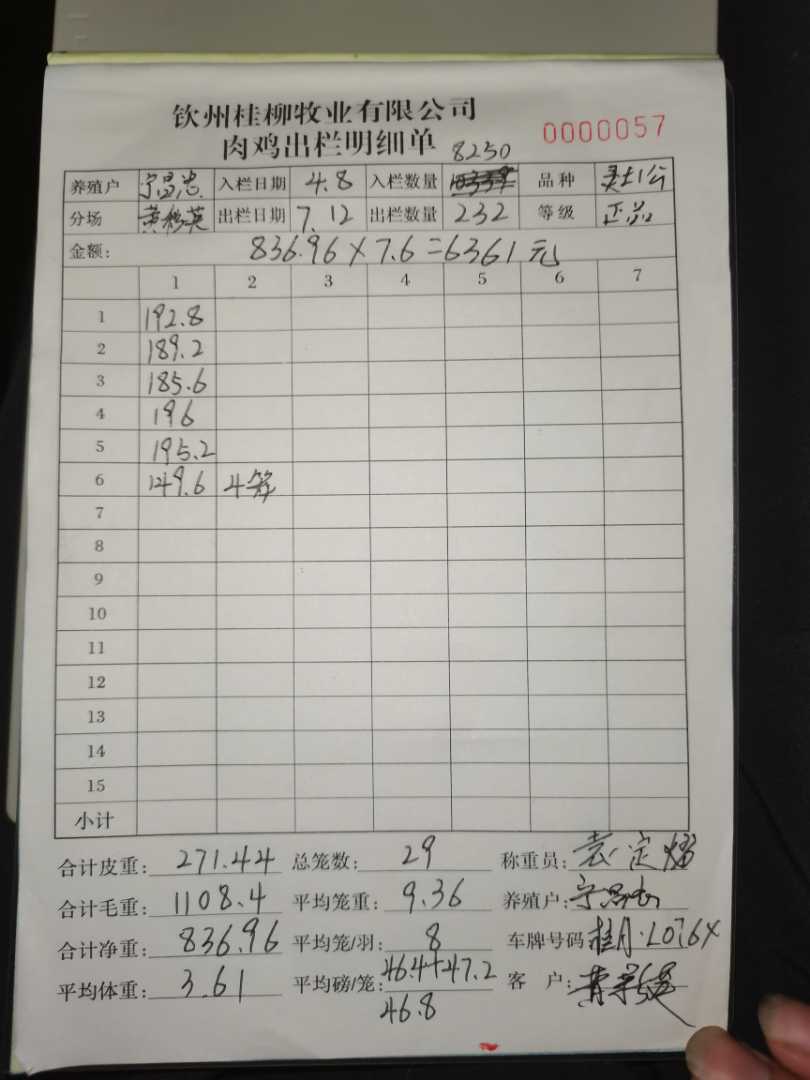 钦州桂柳牧业有限公司
肉鸡出栏明细单
0000057
8250
养殖户 宁昌志 入栏日期 4.8 入栏数量 品种 灵土1公
分场 黄彩英 出栏日期 7.12 出栏数量 232 等级 正品
金额: 836.96×7.6=6361元
1 2 3 4 5 6 7
1 192.8
2 189.2
3 185.6
4 196
5 195.2
6 149.6 4笼
7
8
9
10
11
12
13
14
15
小计
合计皮重: 271.44 总笼数: 29 称重员: 袁定
合计毛重: 1108.4 平均笼重: 9.36 养殖户: 宁昌志
合计净重: 836.96 平均笼/羽: 8 车牌号码
平均体重: 3.61 平均磅/笼: 46.4+47.2 客户:
46.8